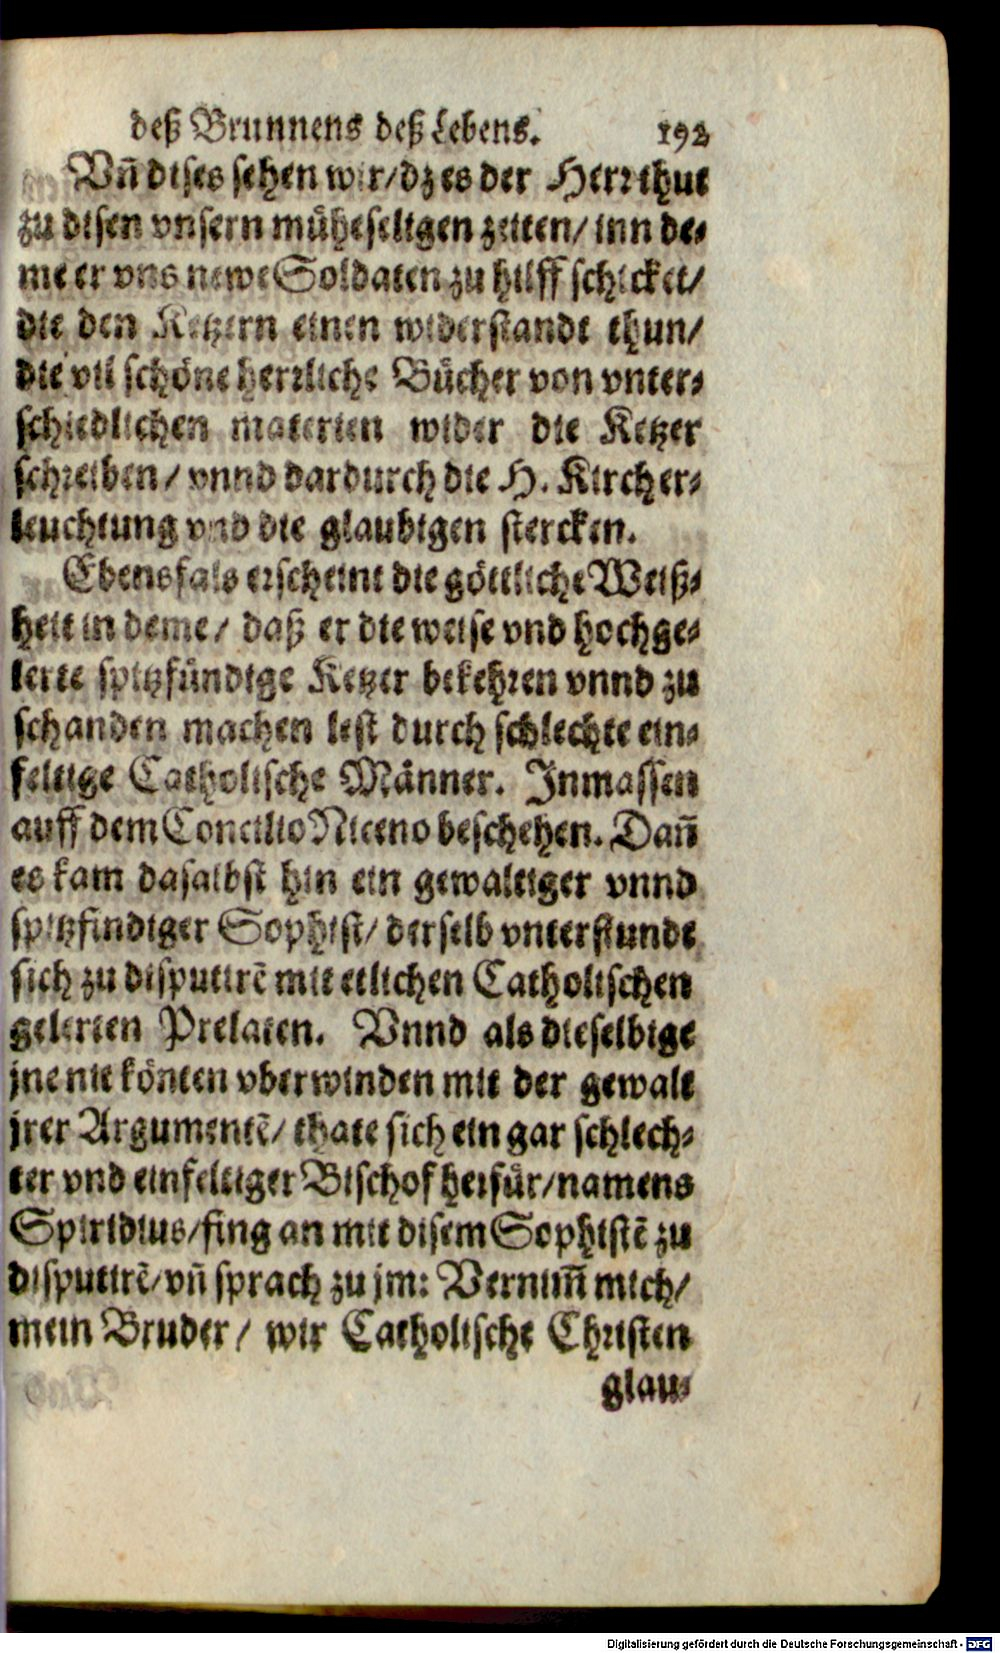 deß Brunnens deß Lebens. 192
Vn̄ dises sehen wir/dz es der Herr thut
zu disen vnsern müheseligen zeiten/ inn de-
me er vns newe Soldaten zu hilff schicket/
die den Ketzern einen widerstandt thun/
die vil schöne herrliche Bücher von vnter-
schiedlichen materien wider die Ketzer
schreiben/ vnnd dardurch die H. Kirch er-
leuchtung vnd die glaubigen stercken.
Ebensfals erscheint die göttliche Weiß-
heit in deme/ daß er die weise vnd hochge-
lerte spitzfündige Ketzer bekehren vnnd zu
schanden machen lest durch schlechte ein-
feltige Catholische Männer. Inmassen
auff dem Concilio Niceno beschehen. Dan̄
es kam dasalbst hin ein gewaltiger vnnd
spitzfindiger Sophist/ derselb vnterstunde
sich zu disputirē mit etlichen Catholischen
gelerten Prelaten. Vnnd als dieselbige
jne nit könten vberwinden mit der gewalt
jrer Argumentē/ thate sich ein gar schlech-
ter vnd einfeltiger Bischof herfür/namens
Spiridius/fing an mit disem Sophistē zu
disputirē/vn̄ sprach zu jm: Vernim̄ mich/
mein Bruder/ wir Catholische Christen
glau-
Digitalisierung gefördert durch die Deutsche Forschungsgemeinschaft - DFG